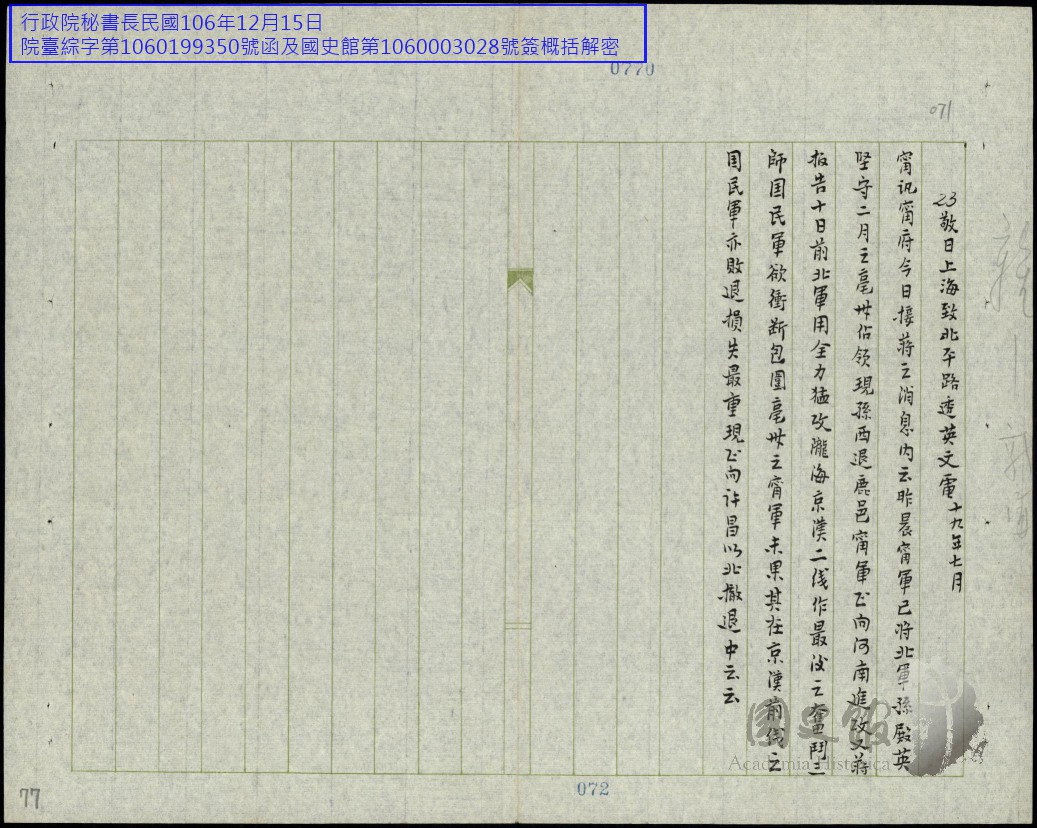 行政院秘書長民國106年12月15日
院臺綜字第1060199350號函及國史館第1060003028號簽概括解密
0770
071
23敬日上海致北平路透英文電十九年七月
甯訊甯府今日接蔣之消息內云昨晨甯軍已將北軍孫殿英
坚守二月之亳州佔領現孫西退鹿邑甯軍正向河南進攻又蔣
报告十日前北軍用全力猛攻隴海京漢二线作最後之奮鬥三
師国民軍欲衝斷包圍亳州之甯軍未果其在京漢前线之
国民軍亦敗退損失最重現正向许昌以北撤退中云云
國史館
Academia Historica
072
77